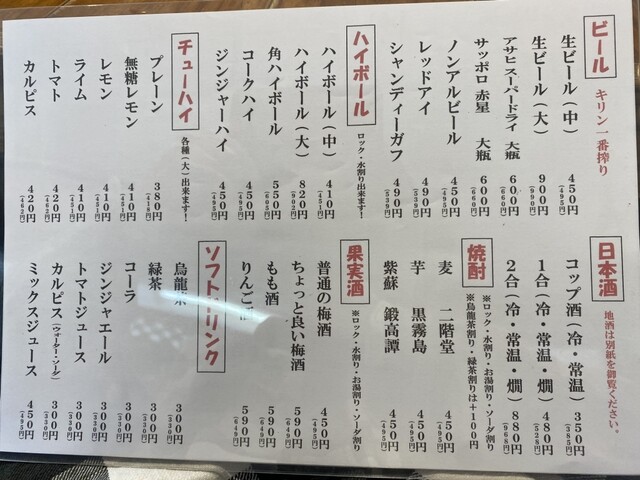 ビール キリン一番搾り
生ビール(中) 450円(495円)
生ビール(大) 900円(990円)
アサヒスーパードライ 大瓶 600円(660円)
サッポロ赤星 大瓶 600円(660円)
ノンアルビール 450円(495円)
レッドアイ 490円(539円)
シャンディーガフ 490円(539円)
ハイボール ロック・水割り出来ます!
ハイボール(中) 410円(451円)
ハイボール(大) 820円(902円)
角ハイボール 550円(605円)
コークハイ 450円(495円)
ジンジャーハイ 450円(495円)
チューハイ 各種(大)出来ます!
プレーン 380円(418円)
無糖レモン 410円(451円)
レモン 410円(451円)
ライム 410円(451円)
トマト 420円(462円)
カルピス 420円(462円)
日本酒 地酒は別紙を御覧ください。
コップ酒(冷・常温) 350円(385円)
1合(冷・常温・燗) 480円(528円)
2合(冷・常温・燗) 880円(968円)
焼酎 ※ロック・水割り・お湯割り・ソーダ割り
※烏龍茶割り・緑茶割りは+100円
麦 二階堂 450円(495円)
芋 黒霧島 450円(495円)
紫蘇 鍛高譚 450円(495円)
果実酒 ※ロック・水割り・お湯割り・ソーダ割り
普通の梅酒 450円(495円)
ちょっと良い梅酒 590円(649円)
もも酒 590円(649円)
りんご 590円(649円)
ソフトドリンク
烏龍茶 300円(330円)
緑茶 300円(330円)
コーラ 300円(330円)
ジンジャエール 300円(330円)
トマトジュース 300円(330円)
カルピス(ウォーター・ソーダ)
ミックスジュース 450円(495円)